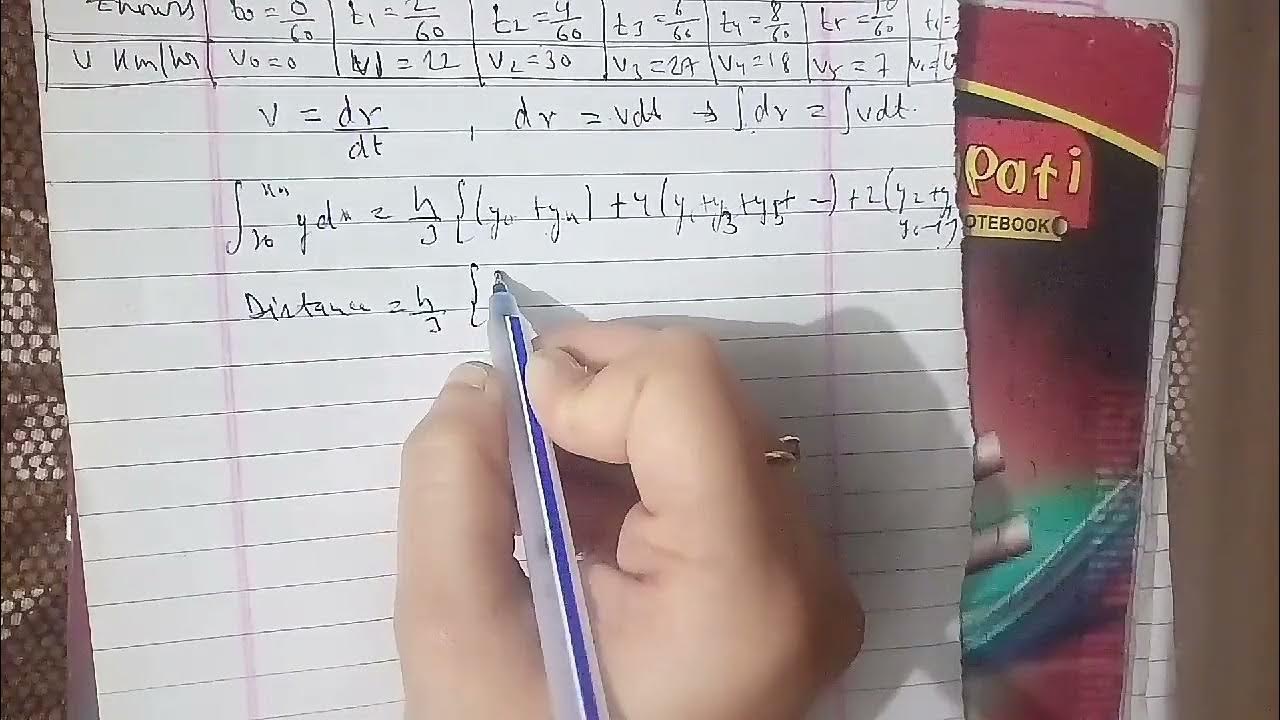 t hours t₀ = 0/60 t₁ = 2/60 t₂ = 4/60 t₃ = 6/60 t₄ = 8/60 t₅ = 10/60
V km/hr V₀ = 0 V₁ = 22 V₂ = 30 V₃ = 27 V₄ = 18 V₅ = 7
V = dr/dt , dr = vdt → ∫dr = ∫vdt.
∫ y dx = h/3 {(y₀ + yₙ) + 4(y₁ + y₃ + y₅ + --) + 2(y₂ + y₄
Distance = h/3 {
Pati
NOTEBOOK